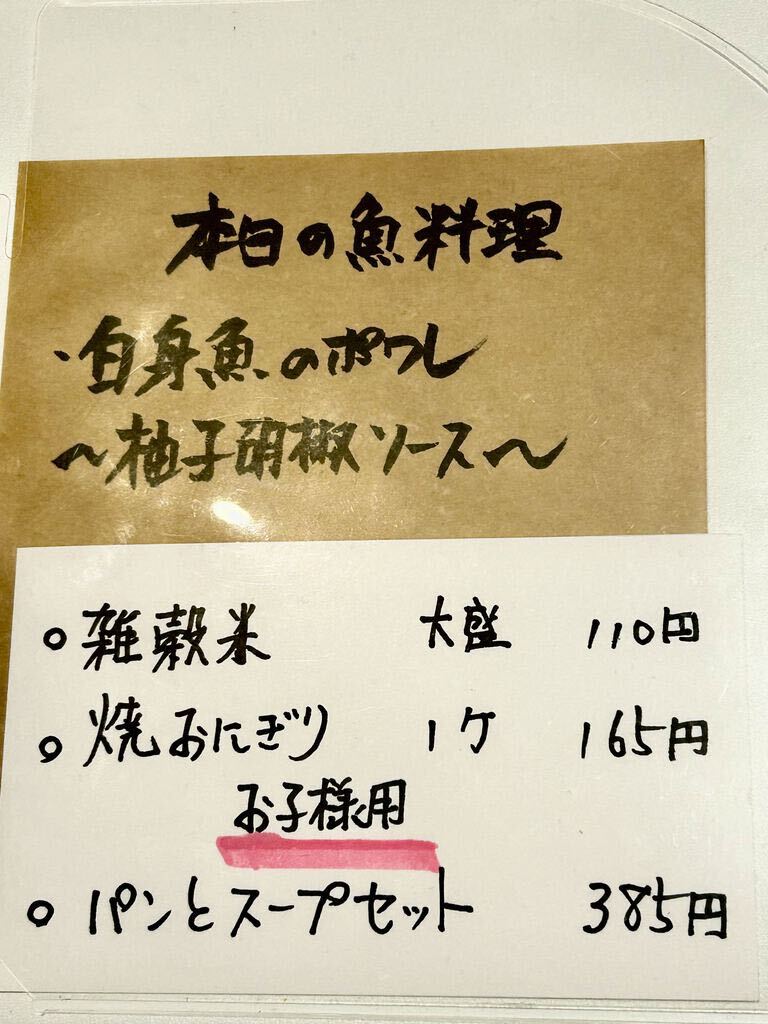 本日の魚料理
・白身魚のポワレ
～柚子胡椒ソース～
○雑穀米 大盛 110円
○焼おにぎり 1ケ 165円
お子様用
○パンとスープセット 385円